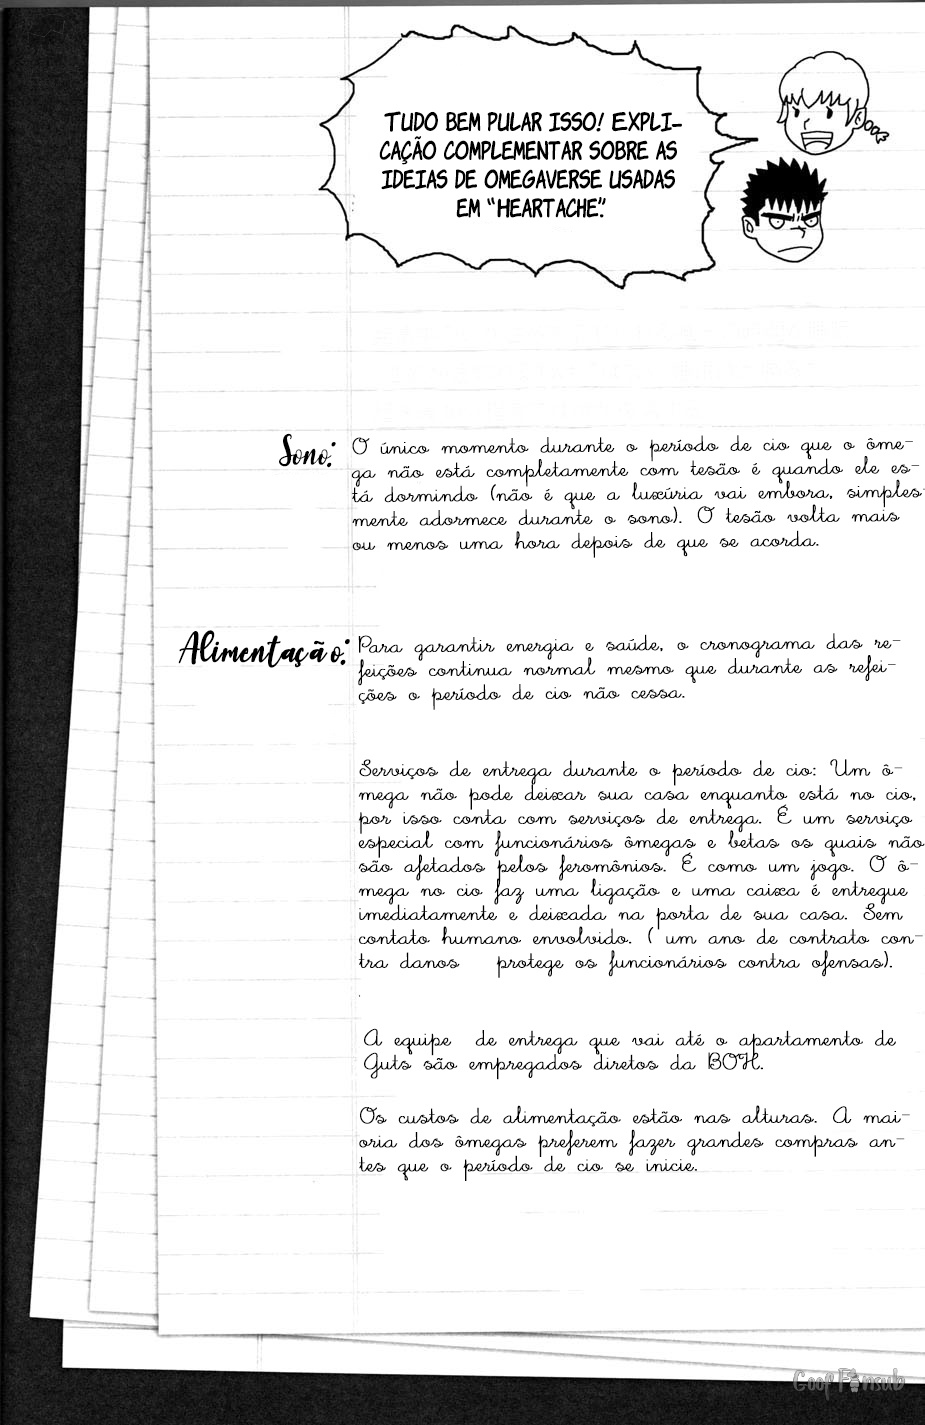 TUDO BEM PULAR ISSO! EXPLI-
CAÇÃO COMPLEMENTAR SOBRE AS
IDEIAS DE OMEGAVERSE USADAS
EM "HEARTACHE".
Sono:
O único momento durante o período de cio que o ôme-
ga não está completamente com tesão é quando ele es-
tá dormindo (não é que a luxúria vai embora, simples-
mente adormece durante o sono). O tesão volta mais
ou menos uma hora depois de que se acorda.
Alimentação:
Para garantir energia e saúde, o cronograma das re-
feições continua normal mesmo que durante as refei-
ções o período de cio não cessa.
Serviços de entrega durante o período de cio: Um ô-
mega não pode deixar sua casa enquanto está no cio,
por isso conta com serviços de entrega. É um serviço
especial com funcionários ômegas e betas os quais não
são afetados pelos feromônios. É como um jogo. O ô-
mega no cio faz uma ligação e uma caixa é entregue
imediatamente e deixada na porta de sua casa. Sem
contato humano envolvido. ( um ano de contrato con-
tra danos protege os funcionários contra ofensas).
A equipe de entrega que vai até o apartamento de
Guts são empregados diretos da BOH.
Os custos de alimentação estão nas alturas. A mai-
oria dos ômegas preferem fazer grandes compras an-
tes que o período de cio se inicie.
Goof Fansub